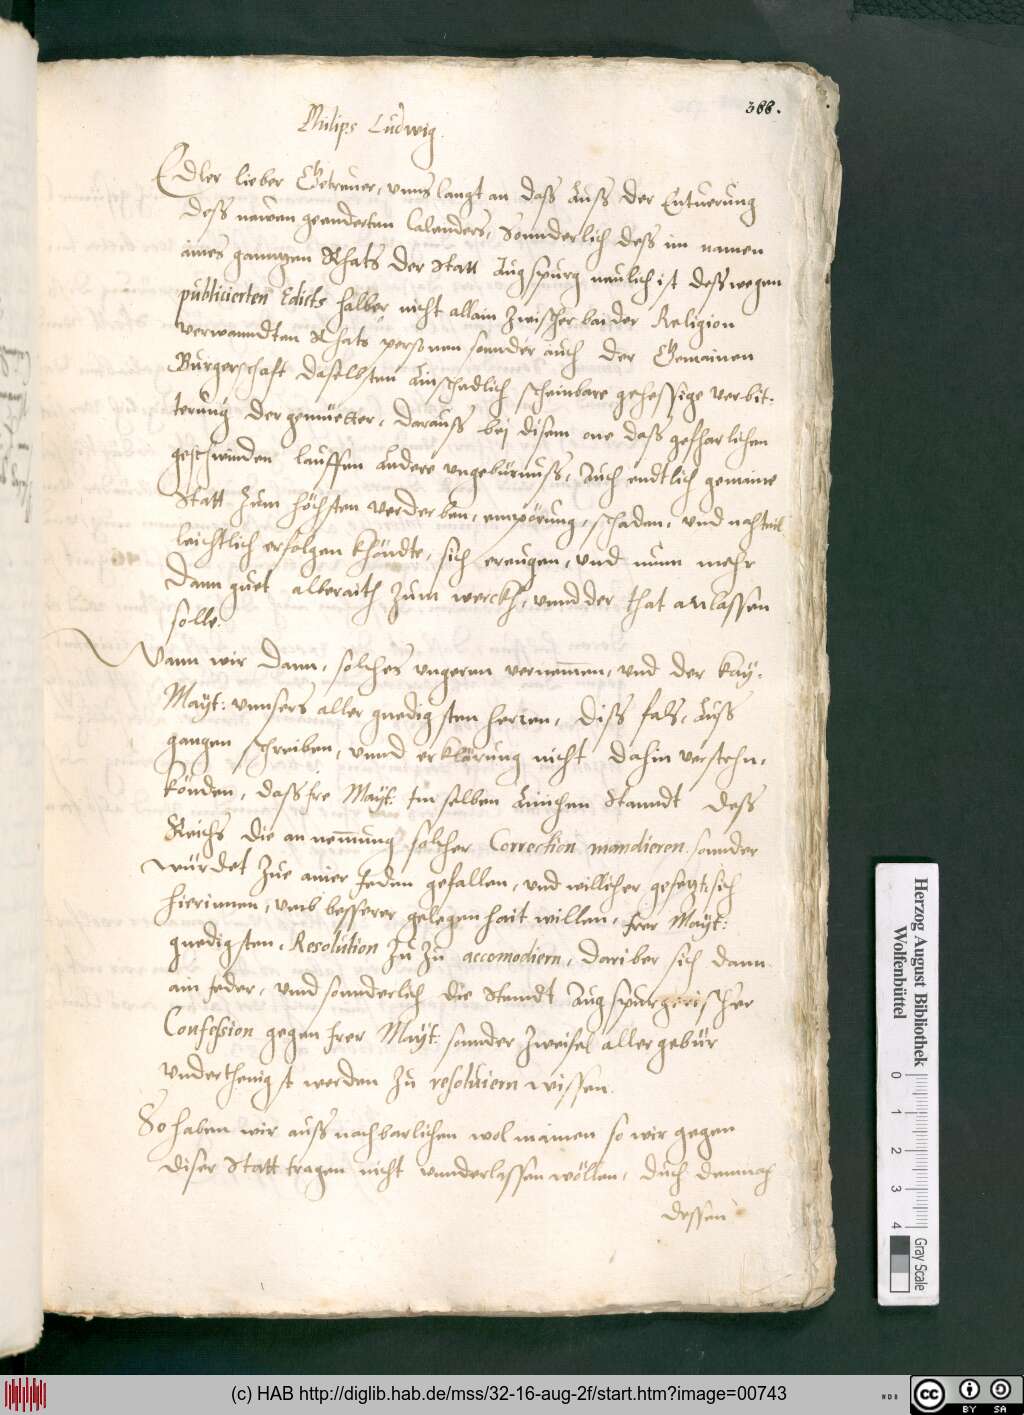 388.
Philips Ludwig.
Edler lieber Getreuer, vnns langt an daß auß der Entuerung
deß nawen geenderten Calenders, sonnderlich deß im namen
aines ganntzen Rhats der Statt Augspurg neulich ist deßwegen
publicierten Edicts halber nicht allain zwischer baider Religion
verwanndten Rhats personen sonnder auch der Gemainen
Burgerschaft daselbsten ainschedlich scheinbare gehessige verbit-
terung der gemüetter, darauß bej disem one daß gefharlichen
geschwinden lauffen andere vngebürnuß, Auch endtlich gemaine
Statt zum höchsten verderben, empörung, schaden, vnd nachteil
leichtlich erfolgen khöndte, sich ereugen, vnd numm mehr
dann guet alberaith zum werckh, vnnd der that anlassen
solle.
Wann wir dann, solches vngeren vernemmen, vnd der Kay:
Mayt: vnnsers aller gnedigsten herren, diß fals, auß
gangen schreiben, vnnd erklärung nicht dahin verstehn,
könden, daß Ire Mayt: Im selben ainichen Stanndt deß
Reichs die annemmung solcher Correction mandieren, sonnder
würdet zue ainer Jeden gefallen, vnd willicher gesetzt sich
hierinnen, vmb besserer gelegenhait willen, Irer Mayt:
gnedigsten, Resolution zu zu accomodiern, dariber sich dann
ain Jeder, vnd sonnderlich die Stendt Augspurgerischer
Confession gegen Irer Mayt: sonnder zweifel aller gebür
vnderthenigst werden zu resoluiern wissen.
So haben wir auß nachbarlichen wolmainen so wir gegen
diser Statt tragen nicht vnnderlassen wöllen, dich demnach
dessen
Herzog August Bibliothek
Wolfenbüttel
0 1 2 3 4
Gray Scale
(c) HAB http://diglib.hab.de/mss/32-16-aug-2f/start.htm?image=00743
WDB
cc BY SA